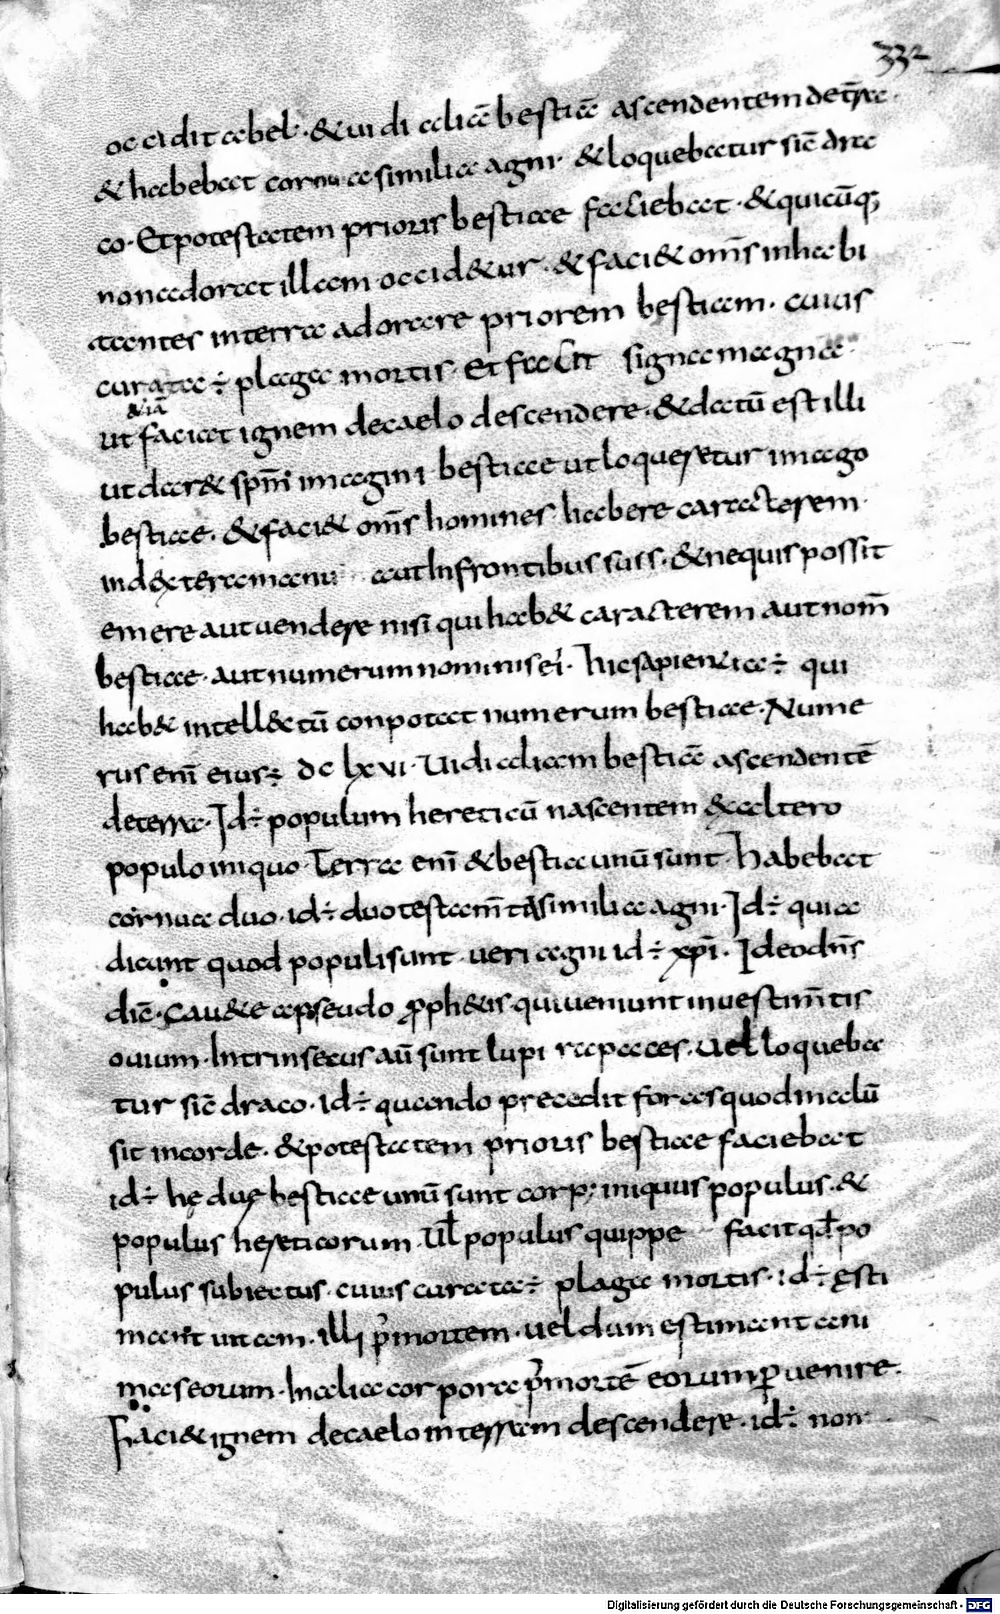 332
occidit abel. & uidi aliā bestiā ascendentem det̄ra.
& habebat cornua similia agni. & loquebatur sic̄ dra
co. Et potestatem prioris bestiae faciebat. & quicūq;
non adorat illam occid&ur. & faci& om̄s inhabi
tantes interra adorare priorem bestiam. cuius
curata ÷ plaga mortis. Et facit signa magna.
&iā
ut faciat ignem decaelo descendere. & datū est illi
ut dar& sp̄m imagini bestiae ut loqueretur imago
bestiae. & faci& om̄s homines habere caracterem.
in dextera manu aut In frontibus suis. & nequis possit
emere aut uendere nisi qui hab& caracterem aut nom̄
bestiae. aut numerum nominis ei'. hic sapientia ÷ qui
hab& intell&tū conpotat numerum bestiae. Nume
rus enī eius ÷ dc lxvi. Uidi aliam bestiā ascendentē
deterra. Id ÷ populum hereticū nascentem exaltero
populo iniquo. Terra enī & bestia unū sunt. habebat
cornua duo. id ÷ duo testam̄ta similia agni. Id ÷ quia
dicant quod populi sunt ueri agni id ÷ xp̄i. Ideo dn̄s
dic̄. Cau&e apseudo proph&is qui ueniunt in uestim̄tis
ouium. Intrinsecus aū sunt lupi rapaces. uel loqueba
tur sic̄ draco. id ÷ quando precedit foras quod malū
sit incorde. & potestatem prioris bestiae faciebat
id ÷ hę duę bestiae unū sunt corp; iniquus populus. &
populus hereticorum. Ul̄ populus quippe facit qd̄ po
pulus subiectus. cuius curata ÷ plaga mortis. id ÷ ęsti
mant uitam. illi p̄ mortem. uel dum estimant ani
mas eorum. In alia corpora p̄ mortē eorum p̄uenire.
Faci& ignem decaelo in terram descendere. id ÷ non
Digitalisierung gefördert durch die Deutsche Forschungsgemeinschaft - DFG